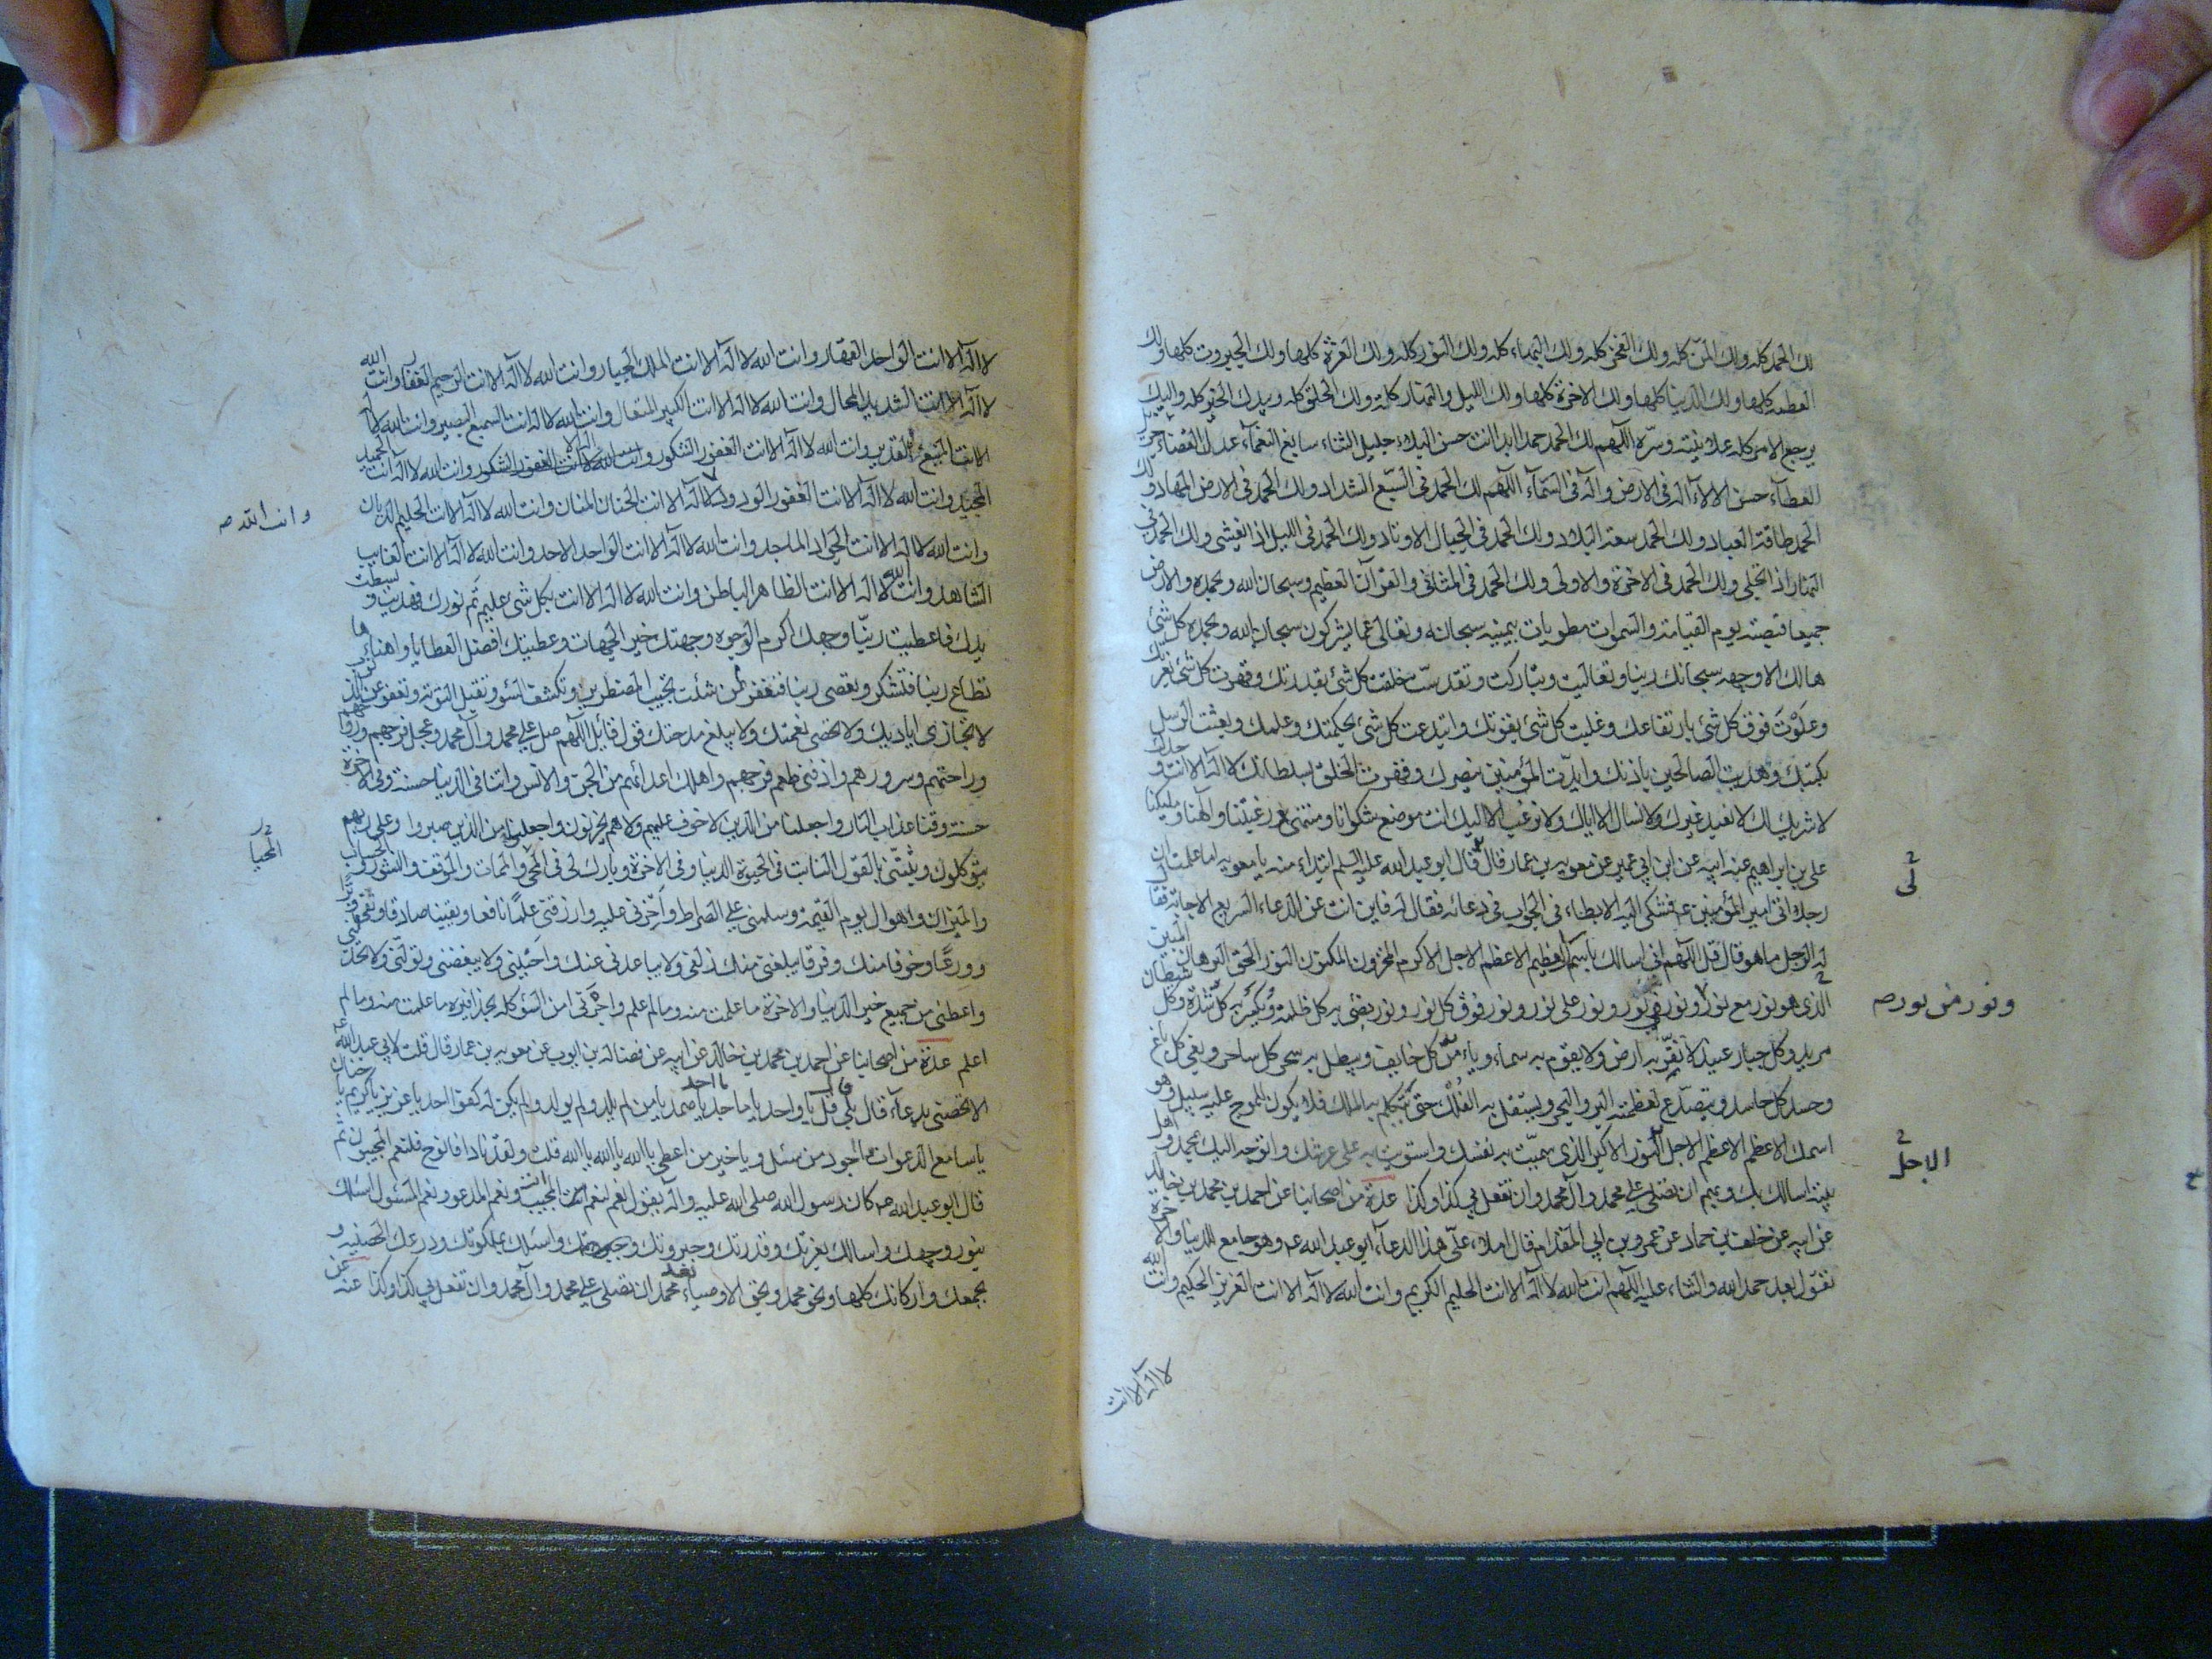 لك الحمد كله ولك المن كله ولك الفخر كله ولك البهاء كله ولك النور كله ولك العزة كلها ولك الجبروت كلها ولك
العظمة كلها ولك الدنيا كلها ولك الاخرة كلها ولك الليل والنهار كله ولك الخلق كله وبيدك الخير كله واليك
يرجع الامر كله علانيته وسره اللهم لك الحمد حمدا ابدا انت حسن البلاء جليل الثناء سابغ النعماء عدل القضاء جزيل
العطاء حسن الالاء اله فى الارض واله فى السماء اللهم لك الحمد فى السبع الشداد ولك الحمد فى الارض المهاد ولك
الحمد طاقة العباد ولك الحمد سعة البلاد ولك الحمد فى الجبال الاوتاد ولك الحمد فى الليل اذا يغشى ولك الحمد فى
النهار اذا تجلى ولك الحمد فى الاخرة والاولى ولك الحمد فى المثانى والقرآن العظيم وسبحان الله وبحمده والارض
جميعا قبضته يوم القيامة والسموات مطويات بيمينه سبحانه وتعالى عما يشركون سبحان الله وبحمده كل شئ
هالك الا وجهه سبحانك ربنا وتعاليت وتباركت وتقدست خلقت كل شئ بقدرتك وقهرت كل شئ بعزتك
وعلوت فوق كل شئ بارتفاعك وغلبت كل شئ بقوتك وابتدعت كل شئ بحكمتك وعلمك وبعثت الرسل
بكتبك وهديت الصالحين باذنك وايدت المؤمنين بنصرك وقهرت الخلق بسلطانك لا اله الا انت وحدك
لا شريك لك لا نعبد غيرك ولا نسال الا اياك ولا نرغب الا اليك انت موضع شكوانا ومنتهى رغبتنا والهنا ومليكنا
على بن ابراهيم عن ابيه عن ابن ابي عمير عن معويه بن عمار قال قال ابو عبد الله عليه السلم ابتداء منه يا معويه اما علمت ان
لى
رجلا اتى امير المؤمنين ع فشكى اليه الابطاء فى الجواب فى دعائه فقال له فاين انت عن الدعاء السريع الاجابة فقال
له الرجل ما هو قال قل اللهم انى اسالك باسمك العظيم الاعظم الاجل الاكرم المخزون المكنون النور الحق البرهان المبين
الذى هو نور مع نور ونور فى نور ونور على نور ونور فوق كل نور ونور يضئ به كل ظلمة ويكسر به كل شدة وكل شيطان
ونور من نور صح
مريد وكل جبار عنيد لا تقر به ارض ولا يقوم به سماء ويامن به كل خايف ويبطل به سحر كل ساحر وبغى كل باغ
وحسد كل حاسد ويتصدع لعظمته البر والبحر ويستقل به الفلك حتى يتكلم به الملك فلا يكون للموج عليه سبيل وهو
اسمك الاعظم الاعظم الاجل النور الاكبر الذى سميت به نفسك واستويت به على عرشك واتوجه اليك بمحمد واهل
الاجل
بيته اسالك بك وبهم ان تصلى على محمد وال محمد وان تفعل بي كذا وكذا عدة من اصحابنا عن احمد بن محمد بن خالد
عن ابيه عن خلف بن حماد عن عمرو بن ابي المقدام قال املا على هذا الدعاء ابو عبد الله ع وهو جامع للدنيا والاخرة
تقول بعد حمد الله والثناء عليه اللهم انت الله لا اله الا انت الحليم الكريم وانت الله لا اله الا انت العزيز الحكيم وانت الله
لا اله الا انت
لا اله الا انت الواحد القهار وانت الله لا اله الا انت الملك الجبار وانت الله لا اله الا انت الرحيم الغفار وانت الله
لا اله الا انت الشديد المحال وانت الله لا اله الا انت الكبير المتعال وانت الله لا اله انت السميع البصير وانت الله لا اله
الا انت المنيع القدير وانت الله لا اله الا انت الغفور الشكور وانت الله لا اله الا انت الغفور الشكور وانت الله لا اله الا انت الحميد
المجيد وانت الله لا اله الا انت الغفور الودود لا اله الا انت الحنان المنان وانت الله لا اله الا انت الحليم الديان
وانت الله صح
وانت الله لا اله الا انت الجواد الماجد وانت الله لا اله الا انت الواحد الاحد وانت الله لا اله الا انت الغايب
الشاهد وانت الله لا اله الا انت الظاهر الباطن وانت الله لا اله الا انت بكل شئ عليم تم نورك فهديت وبسطت
يدك فاعطيت ربنا وجهك اكرم الوجوه وجهتك خير الجهات وعطيتك افضل العطايا واهناها
تطاع ربنا فتشكر وتعصى ربنا فتغفر لمن شئت تجيب المضطرين وتكشف السوء وتقبل التوبة وتعفو عن الذنوب
لا تجازى اياديك ولا تحصى نعمتك ولا يبلغ مدحتك قول قائل اللهم صل على محمد وآل محمد وعجل فرجهم وروحهم
وراحتهم وسرورهم واذقنى طعم فرجهم واهلك اعدائهم من الجن والانس واتنا فى الدنيا حسنة وفى الاخرة
حسنة وقنا عذاب النار واجعلنا من الذين لا خوف عليهم ولا هم يحزنون واجعلنى من الذين صبروا وعلى ربهم
يتوكلون وثبتنى بالقول الثابت فى الحيوة الدنيا وفى الاخرة وبارك لى فى المحيا والممات والموقف والنشور والحساب
المحيا
والميزان واهوال يوم القيمة وسلمنى على الصراط واجزنى عليه وارزقنى علما نافعا ويقينا صادقا وتقى وبرا
وورعا وخوفا منك وفرقا يبلغنى منك زلفى ولا يباعدنى عنك واحببنى ولا تبغضنى وتولنى ولا تخذلنى
واعطنى من جميع خير الدنيا والاخرة ما علمت منه وما لم اعلم واجرنى من السوء كله بحذافيره ما علمت منه وما لم
اعلم عدة من اصحابنا عن احمد بن محمد بن خالد عن ابيه عن فضالة بن ايوب عن معويه بن عمار قال قلت لابي عبد الله ع
الا تخصنى بدعاء قال بلى قال قل يا واحد يا ماجد يا احد يا صمد يا من لم يلد ولم يولد ولم يكن له كفوا احد يا عزيز يا كريم يا حنان
يا سامع الدعوات يا اجود من سئل ويا خير من اعطى يا الله يا الله يا الله قلت ولقد نادانا نوح فلنعم المجيبون ثم
قال ابو عبد الله ع كان رسول الله صلى الله عليه واله يقول نعم لنعم المجيب انت ونعم المدعو ونعم المسئول اسئلك
بنور وجهك واسالك بعزتك وقدرتك وجبروتك واسئلك بملكوتك ودرعك الحصينة و
بجمعك واركانك كلها وبحق محمد وبحق الاوصياء بعد محمد ان تصلى على محمد وآل محمد وان تفعل بي كذا وكذا عنه عن